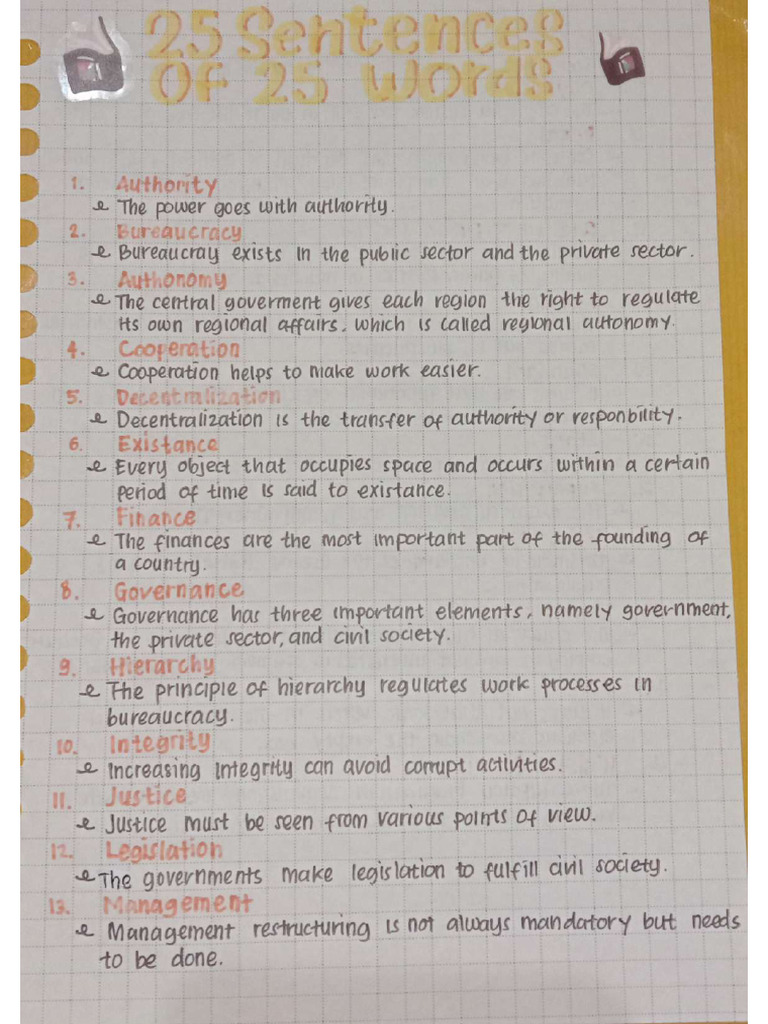 25 Sentences
Of 25 Words
1. Authority
The power goes with authority.
2. Bureaucracy
Bureaucray exists in the public sector and the private sector.
3. Authonomy
The central goverment gives each region the right to regulate
its own regional affairs, which is called regional autonomy.
4. Cooperation
Cooperation helps to make work easier.
5. Decentralization
Decentralization is the transfer of authority or responbility.
6. Existance
Every object that occupies space and occurs within a certain
period of time is said to existance.
7. Finance
The finances are the most important part of the founding of
a country.
8. Governance
Governance has three important elements, namely government,
the private sector, and civil society.
9. Hierarchy
The principle of hierarchy regulates work processes in
bureaucracy.
10. Integrity
Increasing integrity can avoid corrupt activities.
11. Justice
Justice must be seen from various points of view.
12. Legislation
The governments make legislation to fulfill civil society.
13. Management
Management restructuring is not always mandatory but needs
to be done.